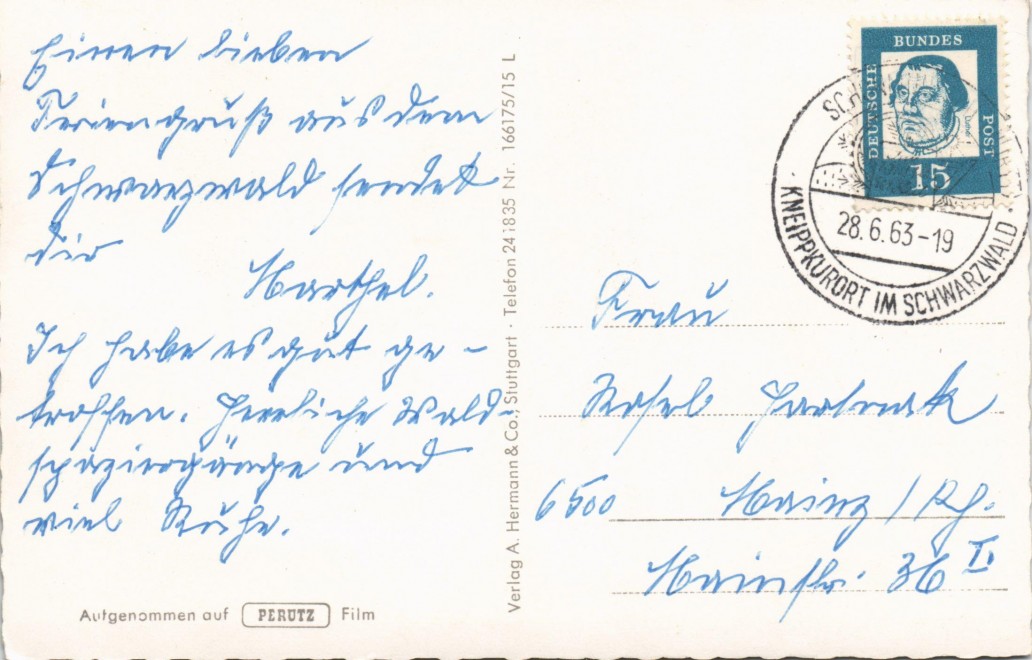 Einen lieben
Feriengruß aus dem
Schwarzwald sendet
dir
Marthel.
Ich habe es gut ge-
troffen. Herrliche Wald-
spaziergänge und
viel Ruhe.
Aufgenommen auf PERUTZ Film
Verlag A. Hermann & Co., Stuttgart · Telefon 241835 Nr. 166175/15 L
DEUTSCHE BUNDES POST
Luther
15
28.6.63-19
KNEIPPKURORT IM SCHWARZWALD
Frau
Rosel
6500 Mainz / Rh.
Mainstr. 36 II